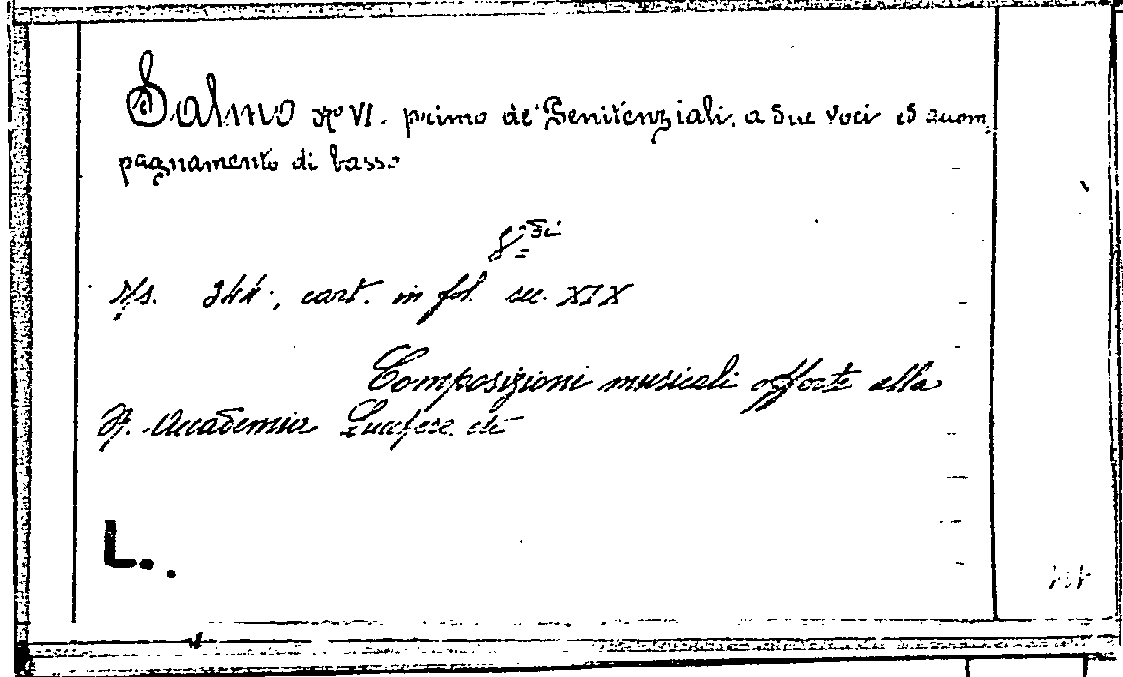 Salmo No VI. primo de' Penitenziali, a due voci ed accom-
pagnamento di basso
Ms. 344, cart. in fol. sec. XIX
Composizioni musicali offerte alla
R. Accademia Lucchese etc
L..